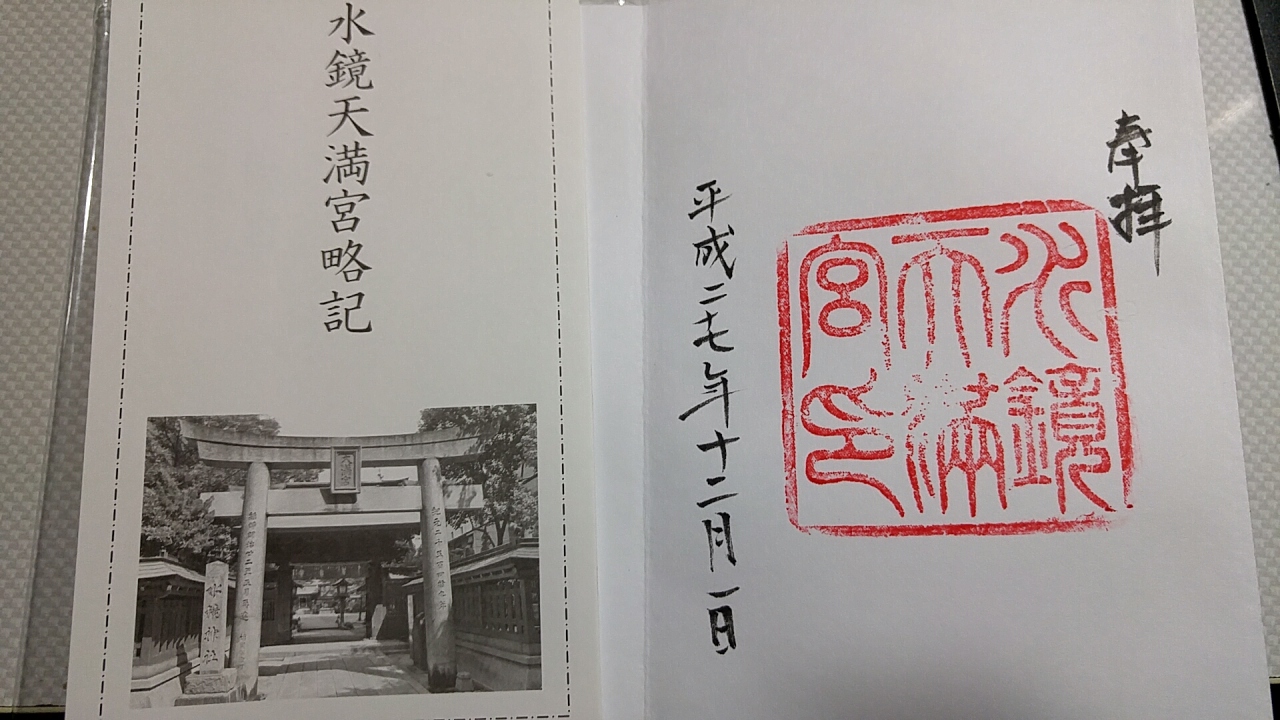 奉拝
水鏡
天満
宮印
平成二十七年十二月一日
水鏡天満宮略記
水鏡神社